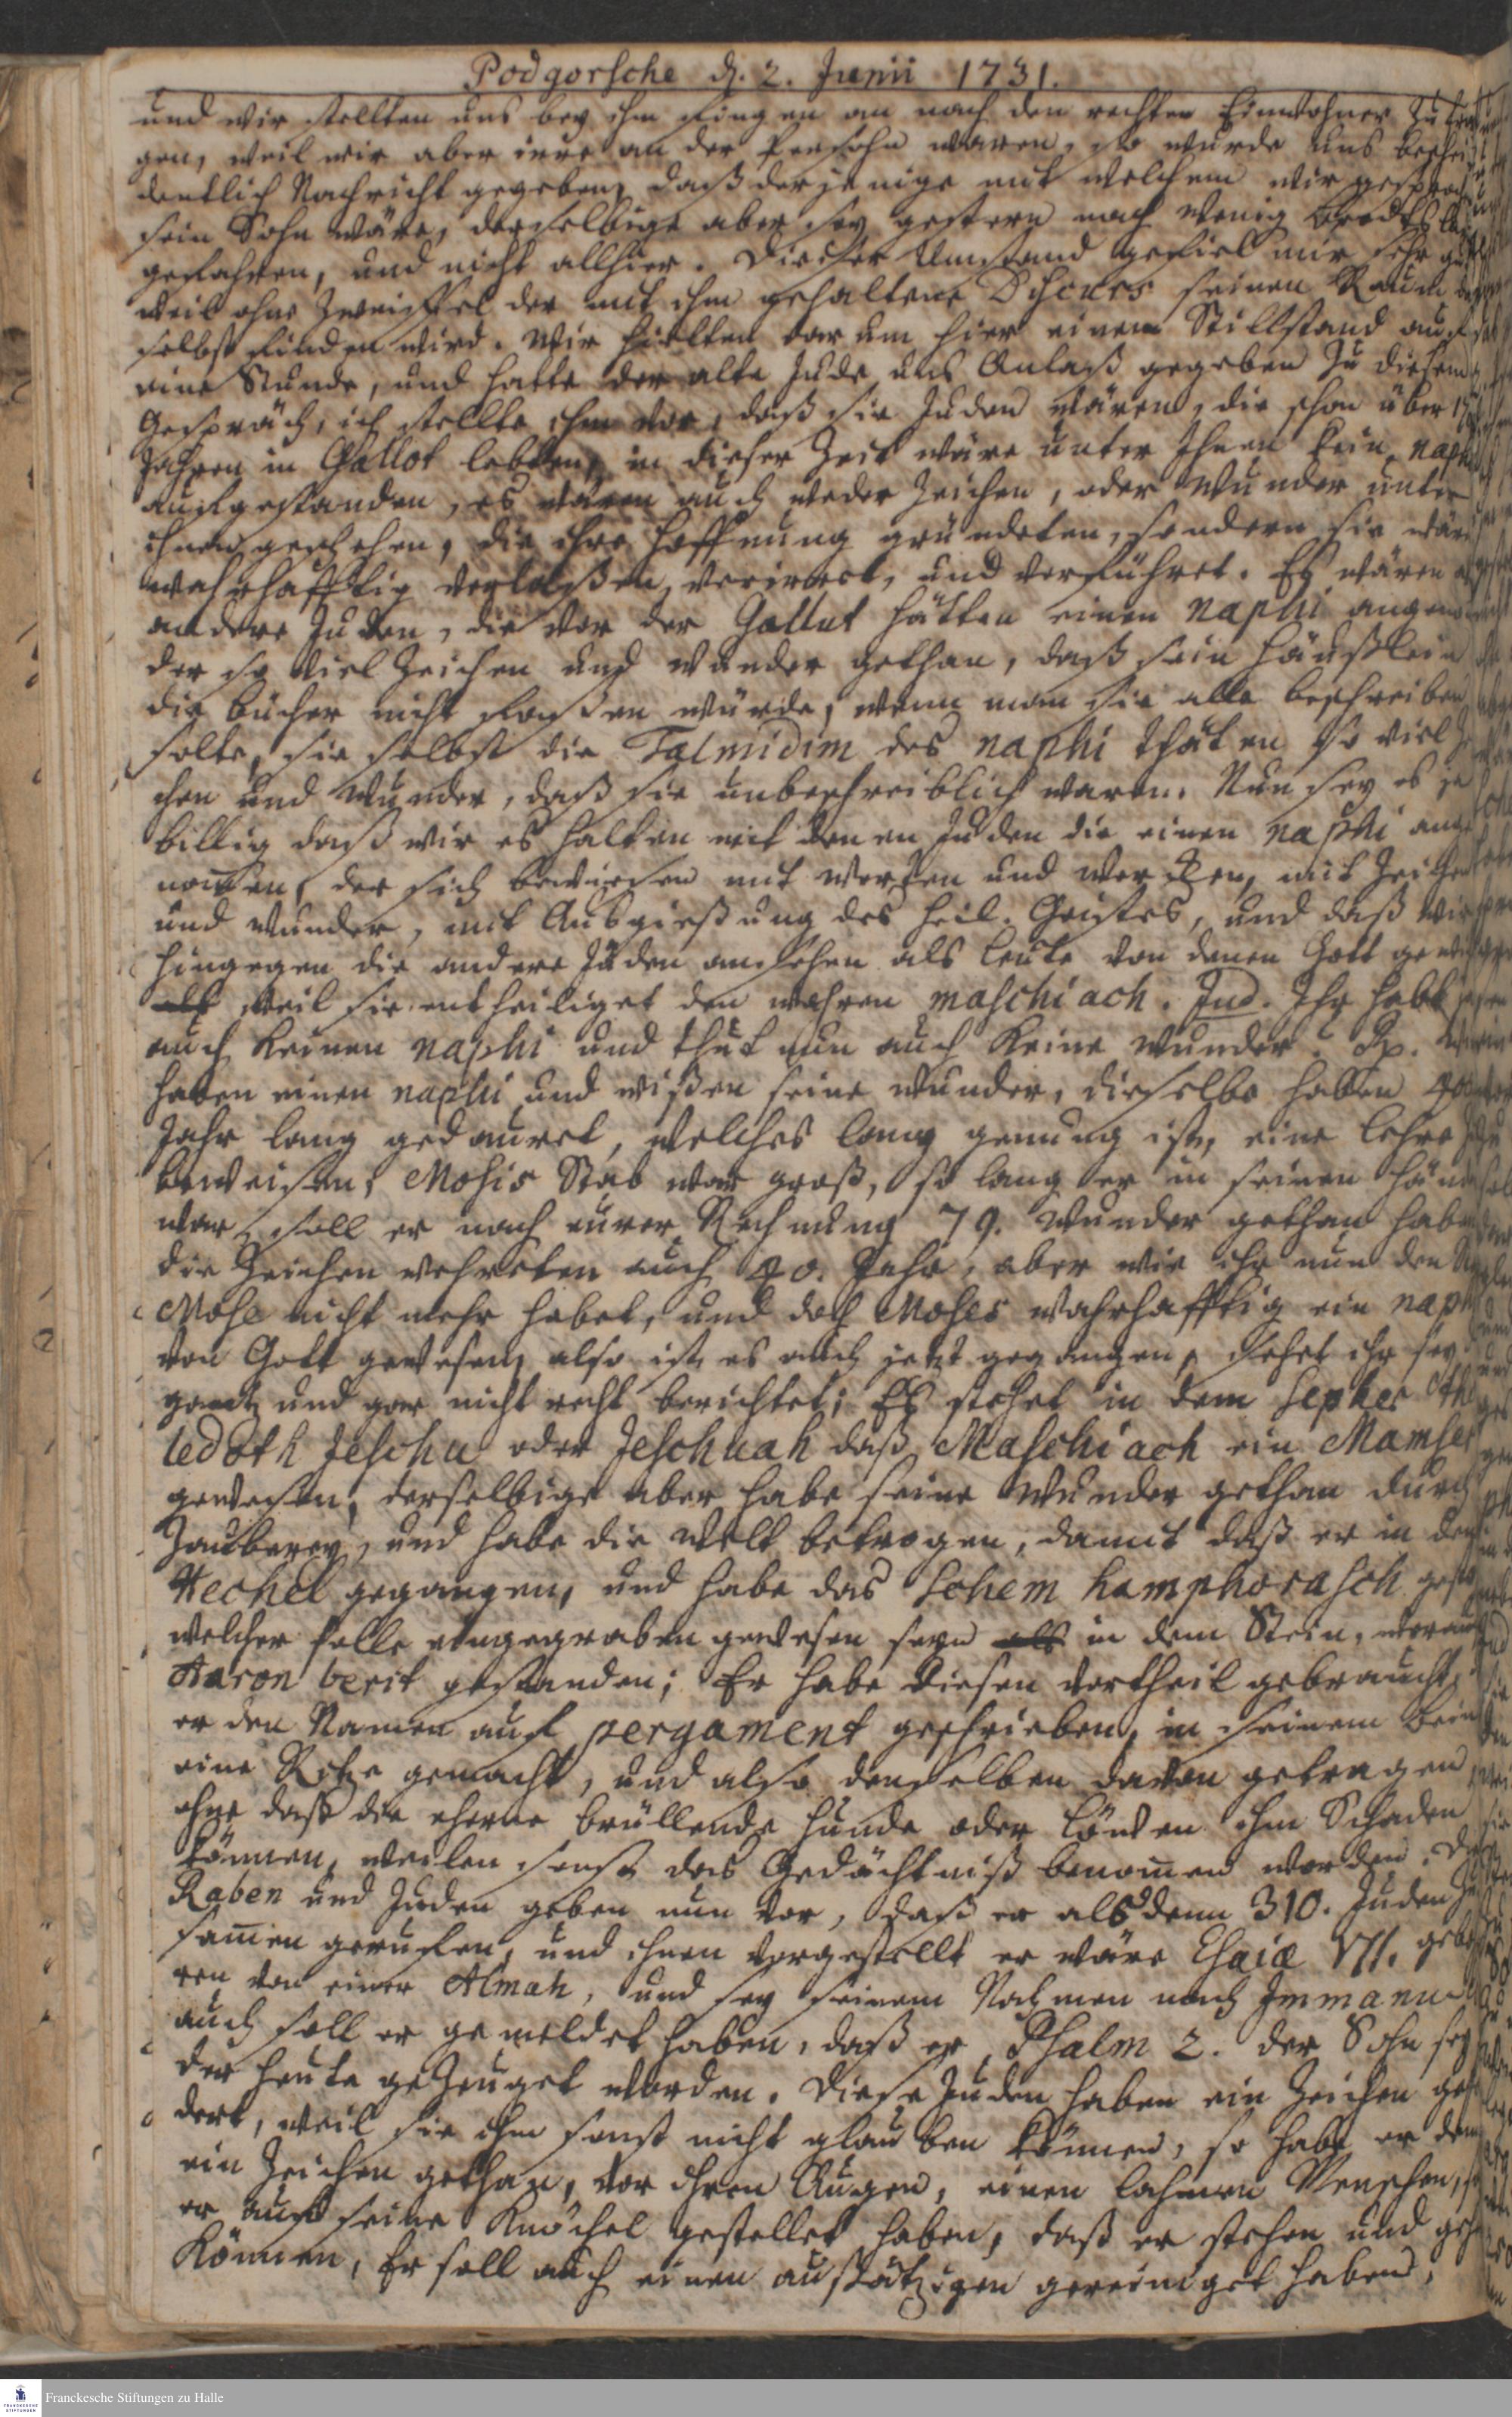 Podgorsche d. 2. Junii 1731.
und wir stellten uns bey ihm fingen an nach den rechten Einwohner zu
gen, weil wir aber irre an der Persohn waren, so wurde uns beschei
dentlich Nachricht gegeben, daß derjenige mit welchem wir gesproch
sein Sohn wäre, derselbige aber sey gestern nach wenig
gefahren, und nicht allhier. Dieser Umstand gefiel mir sehr gut
weil ohne Zweiffel der mit ihm gehaltene Discurs seinen Raum
selbst finden wird. Wir hielten darum hier einen Stillstand auf
eine Stunde, und hatte der alte Jude uns Anlaß gegeben zu diesem
Gespräch, ich stellte ihm vor, daß sie Juden wären, die schon über 17
Jahren in Gallot lebten, in dieser Zeit wäre unter Ihnen kein naphi
aufgestanden, es wären auch weder Zeichen, oder Wunder unter
ihnen geschehen, die ihre Hoffnung gründeten, sondern sie wären
wahrhafftig verlaßen, verirret, und verführet. Es wären
andere Juden, die vor der Gallut hätten einen naphi angenom
der so viel Zeichen und Wunder gethan, daß sein Häußlein
die bücher nicht faßen würde, wenn man sie alle beschreiben
solte, sie selbst die Talmidim des naphi thäten so viel Zei
chen und Wunder, daß sie unbeschreiblich waren. Nun sey es je
billig daß wir es halten mit denen Juden die einen naphi ange
nom̄en, der sich bewiesen mit Worten und Wercken, mit Zeichen
und Wunder, mit Ausgießung des Heil. Geistes, und daß wir
hingegen die andere Juden ansehen als Leute von denen Gott gewichen
weil sie entheiliget den wahren maschiach. Jud. Ihr habt ja
auch keinen naphi und thut nun auch keine Wunder? Rp. Wir
haben einen naphi und wißen seine Wunder, dieselbe haben 40
Jahr lang gedauret, welches lang genung ist, eine Lehre zu
beweisen, Mosis Stab war groß, so lang er in seinen Händ
war, soll er nach eurer Rechnung 79. Wunder gethan haben
die Zeichen wehreten auch 40. Jahr, aber wie ihr nun den
Mose nicht mehr habet, und doch Moses wahrhafftig ein naphi
von Gott gewesen, also ist es auch jetzt gegangen, sehet ihr sey
gantz und gar nicht recht berichtet; Es stehet in dem Sepher Tho
ledoth Jeschu oder Jeschuah daß Maschiach ein Mamser
gewesen, derselbige aber habe seine Wunder gethan durch
Zauberey, und habe die Welt betrogen, damit daß er in den
Hechel gegangen, und habe das Schem hamphorasch
welcher solle eingegraben gewesen seyn in dem Stein, worauf
Aaron berit gestanden; Er habe diesen Vortheil gebraucht,
er den Namen auf pergament geschrieben, in seinem Bein
eine Ritze gemacht, und also denselben davon getragen
ohne daß die eherne brüllende Hunde oder Löwen ihm Schaden
können, weilen sonst das Gedächtniß benom̄en worden. Die
Raben und Juden geben nun vor, daß er alsdenn 310. Juden zu
sam̄en geruffen, und ihnen vorgestellt er wäre Esaiæ VII. geboh
ren von einer Almah, und sey seinem Nahmen nach Immanuel
auch soll er gemeldet haben, daß er Psalm 2. der Sohn sey
der heute gezeuget worden. Diese Juden haben ein Zeichen gefo
dert, weil sie ihm sonst nicht glauben können, so habe er denn
ein Zeichen gethan, vor ihren Augen, einen lahmen Menschen,
er auf seine Knöchel gestellet haben, daß er stehen und gehen
können, Er soll auch einen aussätzigen gereiniget haben,
Franckesche Stiftungen zu Halle